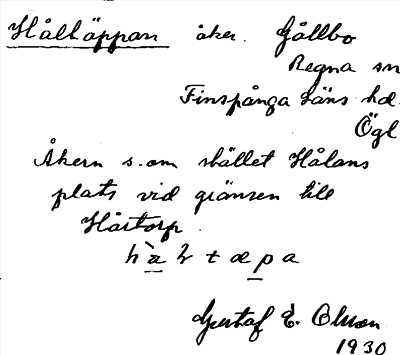 Håltäppan åker. Gållbo
Regna sn
Finspånga läns hd.
Ögl
Åkern s.om stället Hålans
plats vid gränsen till
Hårstorp.
Gustaf E. Olsson
1930